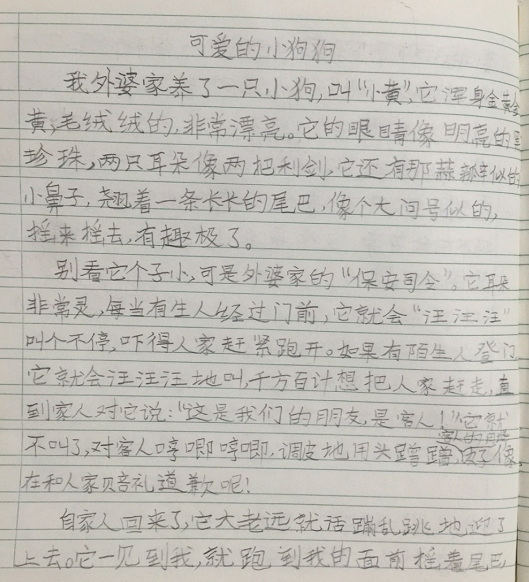 可爱的小狗狗
我外婆家养了一只小狗,叫“小黄”,它浑身金黄金
黄,毛绒绒的,非常漂亮。它的眼睛像明亮的黑
珍珠,两只耳朵像两把利剑,它还有那蒜瓣似的
小鼻子,翘着一条长长的尾巴,像个大问号似的,
摇来摇去,有趣极了。
别看它个子小,可是外婆家的“保安司令”。它耳朵
非常灵,每当有生人经过门前,它就会“汪汪汪”
叫个不停,吓得人家赶紧跑开。如果有陌生人登门,
它就会汪汪汪地叫,千方百计想把人家赶走,直
到家人对它说:“这是我们的朋友,是客人!”它就
不叫了,对客人哼唧哼唧,调皮地用头蹭蹭客人的腿,像
在和人家赔礼道歉呢!
自家人回来了,它大老远就活蹦乱跳地迎了
上去。它一见到我,就跑到我的面前摇着尾巴